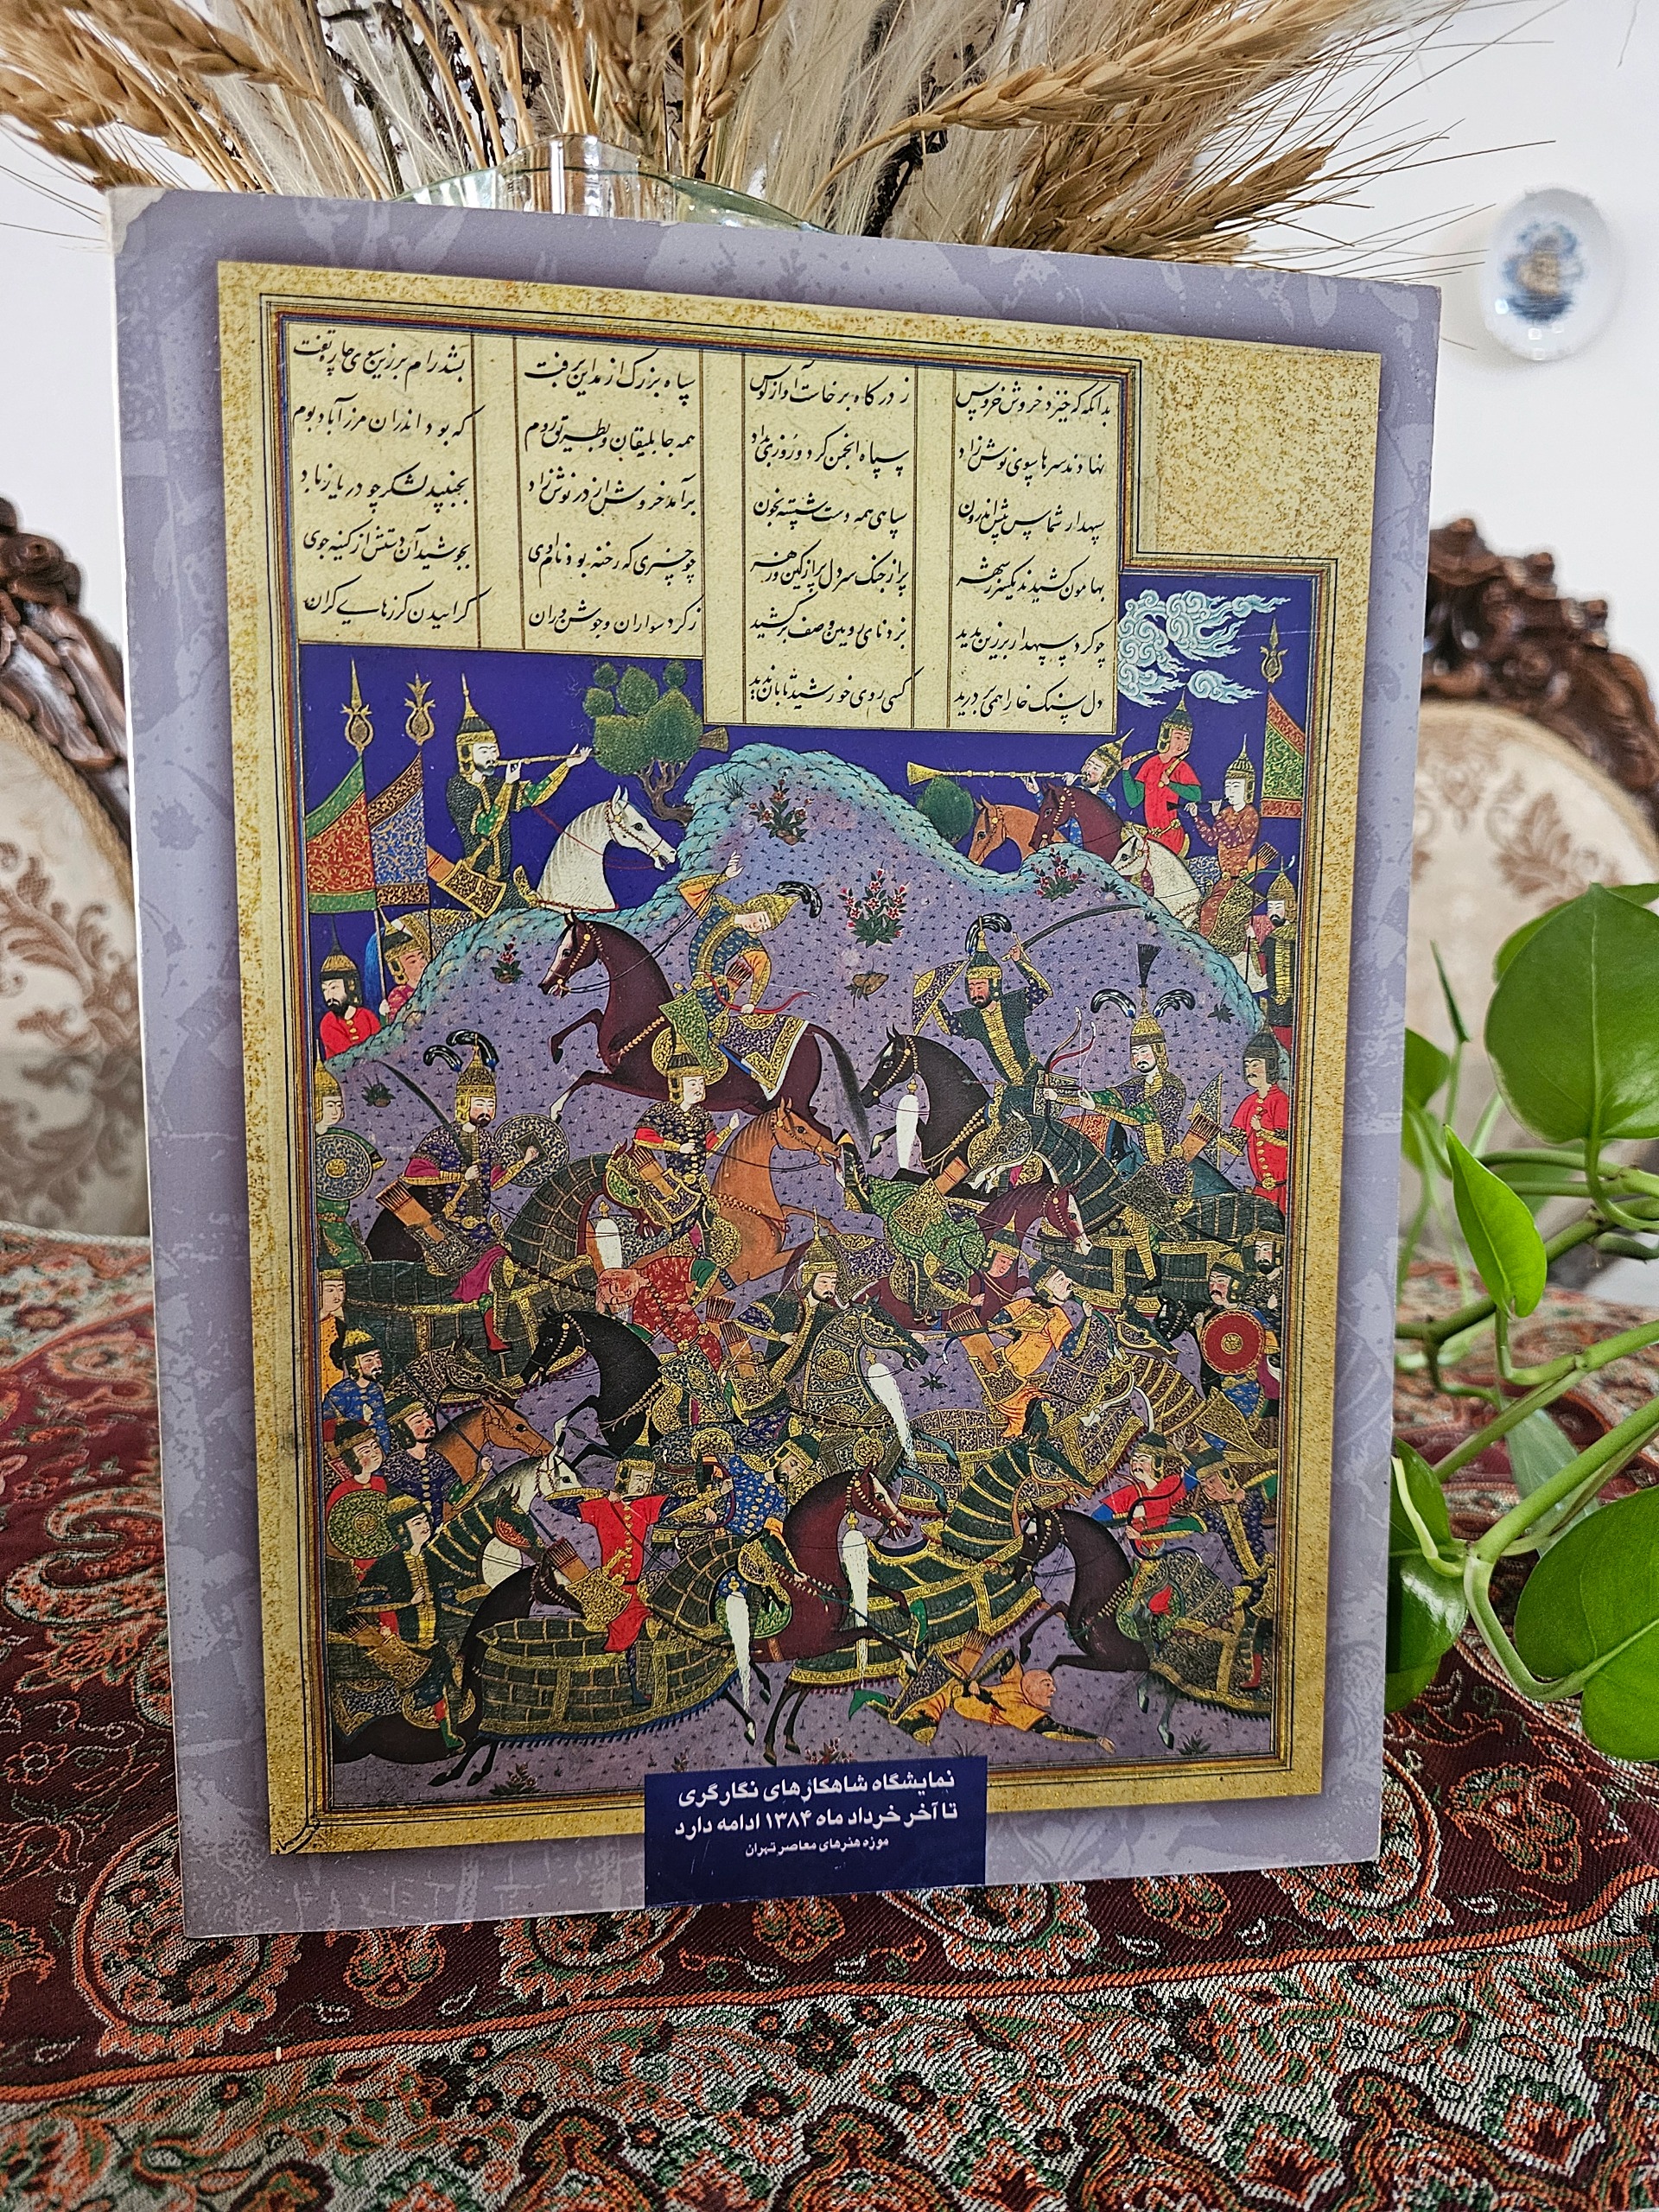 بدانگه که خیزد خروش خروس ز درگاه برخاست آواز کوس سپاه بزرگ از مداین برفت بشد رام برزین سوی چاره تفت
نهادند سرها سوی نوش زاد سپاه انجمن کرد و روزی بداد همه جاثلیقان و بطریق روم که بود اندران مرز آباد بوم
سپهدار شماس پیش اندرون سپاهی همه دست شسته بخون برآمد خروش از در نوش زاد بجنبید لشکر چو دریا ز باد
بهامون کشیدند یکسر ز شهر پر از جنگ سر دل پر از کین و زهر که رخنه بود بجوشید از کینه جوی
چو گرد سپهدار برزین بدید بزد نای رویین و صف برکشید ز گرد سواران و جوشن وران گراییدن گرزهای گران
دل سنگ خارا همی بر درید کسی روی خورشید تابان ندید
نمایشگاه شاهکارهای نگارگری
تا آخر خرداد ماه ۱۳۸۴ ادامه دارد
موزه هنرهای معاصر تهران